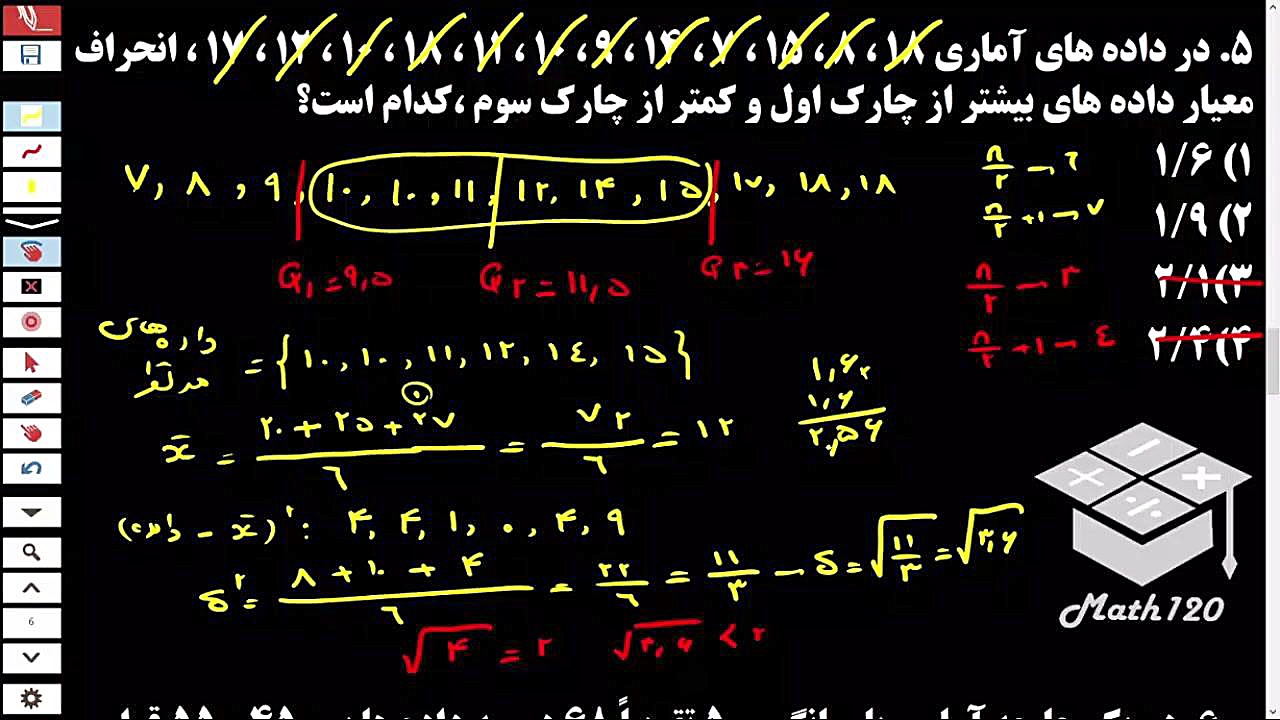 ۵. در داده های آماری ۱۸، ۸، ۱۵، ۷، ۱۴، ۹، ۱۰، ۱۱، ۱۸، ۱۰، ۱۲، ۱۷، انحراف
معیار داده های بیشتر از چارک اول و کمتر از چارک سوم ،کدام است؟
۱) ۱/۶
۲) ۱/۹
۳) ۲/۱
۴) ۲/۴
۷, ۸, ۹, ۱۰, ۱۰, ۱۱, ۱۲, ۱۴, ۱۵, ۱۷, ۱۸, ۱۸
n/۲ → ۶
n/۲ + ۱ → ۷
n/۲ → ۳
n/۲ + ۱ → ۴
Q۱ = ۹,۵ Q۲ = ۱۱,۵ Q۳ = ۱۶
داده های مد نظر = {۱۰, ۱۰, ۱۱, ۱۲, ۱۴, ۱۵}
x̄ = (۲۰ + ۲۵ + ۲۷)/۶ = ۷۲/۶ = ۱۲
۱,۶×
۱,۶
۲,۵۶
(داده - x̄)²: ۴, ۴, ۱, ۰, ۴, ۹
δ² = (۸ + ۱۰ + ۴)/۶ = ۲۲/۶ = ۱۱/۳ → δ = √(۱۱/۳) = √۳,۶
√۴ = ۲ √۳,۶ < ۲
Math120
6